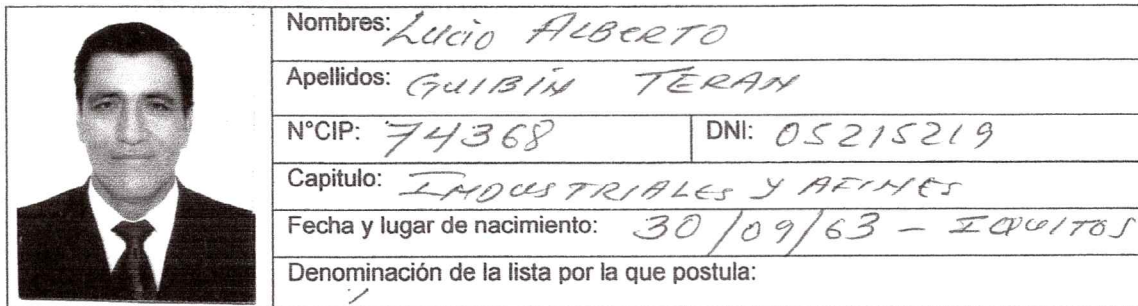 Nombres: Lucio ALBERTO
Apellidos: GUIBIN TERAN
N°CIP: 74368 DNI: 05215219
Capitulo: INDUSTRIALES Y AFINES
Fecha y lugar de nacimiento: 30/09/63 - IQUITOS
Denominación de la lista por la que postula: